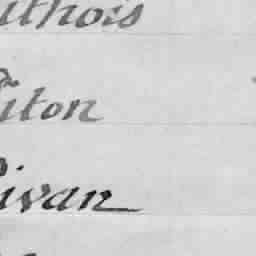 uthois
Titon
ivan